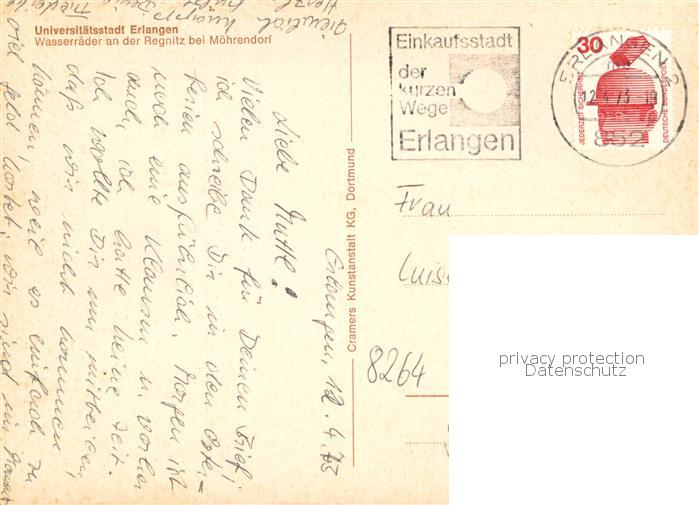 Universitätsstadt Erlangen
Wasserräder an der Regnitz bei Möhrendorf
Erlangen, 12.4.73
Liebe Mutti!
Vielen Dank für Deinen Brief;
ich schreibe Dir in den Oster=
ferien ausführlich. Morgen ist
noch eine Klausur u. vorher
auch, ich hatte keine Zeit.
Ich wollte Dir nur mitteilen,
daß wir nicht kommen
können, weil es einfach zu
viel Geld kostet; wir sind im Moment
ziemlich knapp
Cramers Kunstanstalt KG, Dortmund
Einkaufsstadt
der
kurzen
Wege
Erlangen
ERLANGEN 2
12.4.73-18
852
30
JEDERZEIT SICHERHEIT
DEUTSCHE BUNDESPOST
Frau
8264
privacy protection
Datenschutz